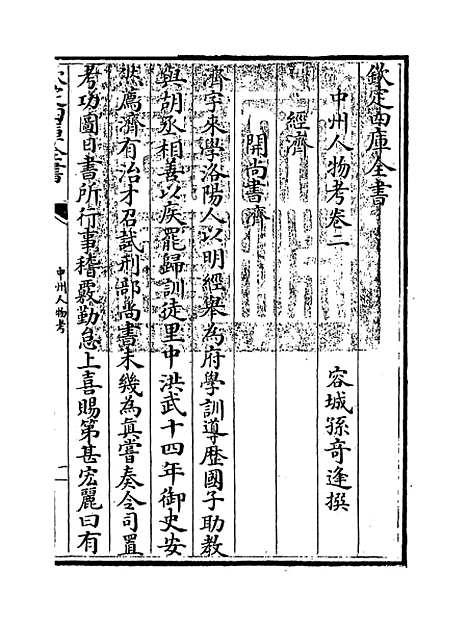 欽定四庫全書
中州人物考卷二
容城孫奇逢撰
經濟
開尚書濟
濟字來學洛陽人以明經舉為府學訓導歴國子助教
與胡丞相善以疾罷歸訓徒里中洪武十四年御史安
然薦濟有治才召試刑部尚書未幾為真嘗奏令司置
考功圖日書所行事稽覈勤怠上喜賜第甚宏麗曰有
欽定四庫全書
中州人物考
一